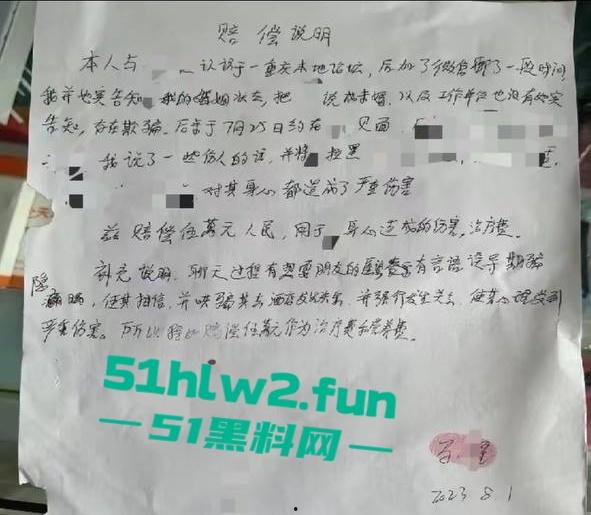 赔偿说明
本人与 认识于一重庆本地论坛，后加了微信聊了一段时间
我并也实告知 我的婚姻状态，把 说成未婚，以及工作单位也没有如实
告知，存在欺骗。后于7月25日约在 见面
我说了一些伤人的话，并将 拉黑
对其身心都造成了严重伤害
兹赔偿伍萬元人民，用于 身心造成的伤害。治疗费。
补充说明：聊天过程有想要朋友的 有言语误导期骗
隐瞒，使其相信，并哄骗其去 ，并强行发生关，使其心理受到
严重伤害。所以特此赔偿伍萬元作为治疗费和营养费。
51hlw2.fun
51黑料网
2023 8.1